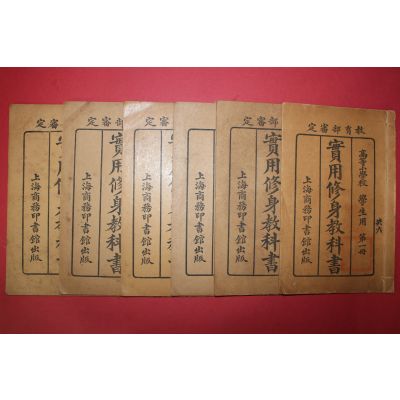 教育部審定
高等小學校 學生用 第一冊
實用修身教科書
上海商務印書館出版
共六
部審定
實用修身教科書
上海商務印書館出版
審定
上海商務印書館出版
審定
上海商務印書館出版
部審定
實用修身教科書
上海商務印書館出版
審定
上海商務印書館出版